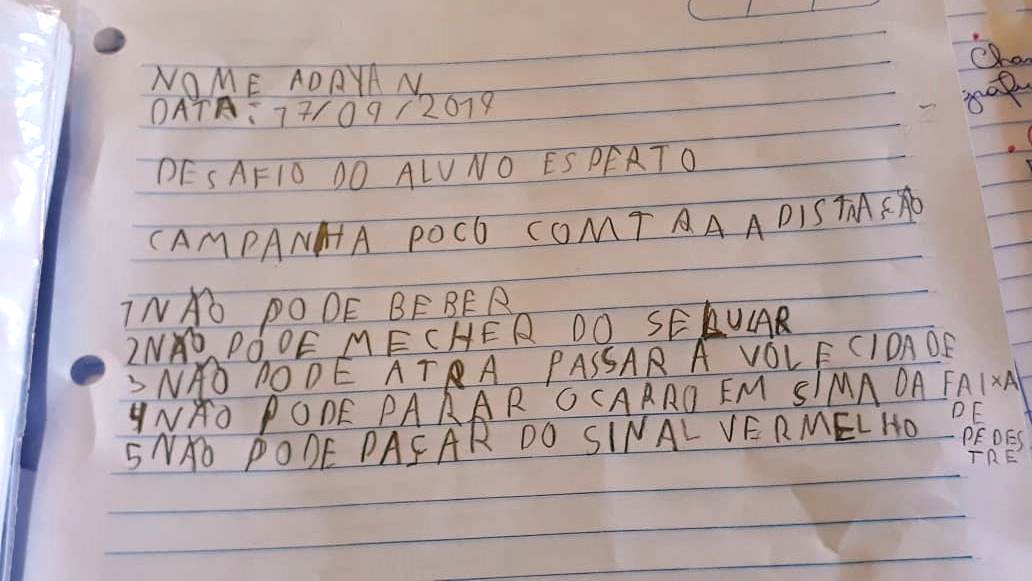 NOME ADRYAN
DATA: 17/09/2019
DESAFIO DO ALUNO ESPERTO
CAMPANHA POCO COMTRA A DISTRAÇÃO
1 NÃO PODE BEBER
2 NÃO PODE MECHER DO SELULAR
3 NÃO PODE ATRA PASSAR A VOLECIDADE
4 NÃO PODE PARAR O CARRO EM SIMA DA FAIXA
DE
PEDES
TRE
5 NÃO PODE PAÇAR DO SINAL VERMELHO